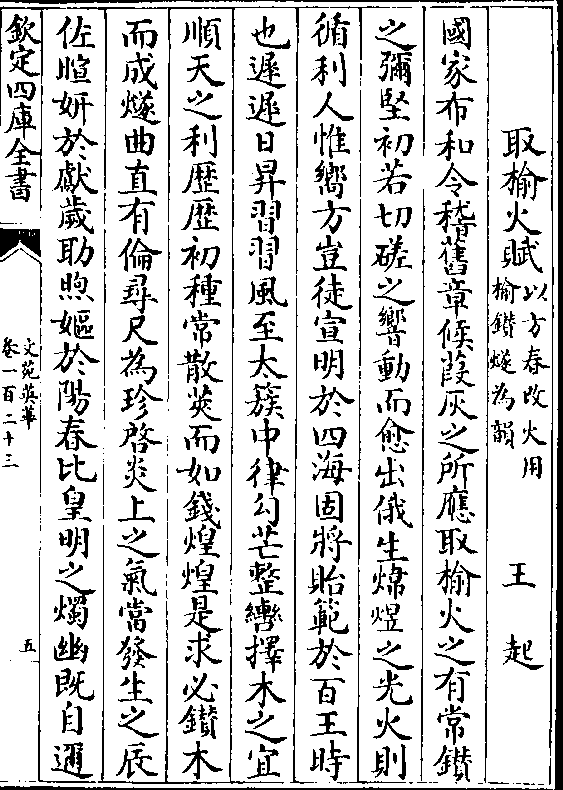 取榆火賦以方春改火用
榆鑽燧為韻
王起
國家布和令稽舊章候葭灰之所應取榆火之有常鑚
之彌堅初若切磋之響動而愈出俄生煒煜之光火則
循利人惟嚮方豈徒宣明於四海固將貽範於百王時
也遲遲日昇習習風至太簇中律勾芒整轡擇木之宜
順天之利歴歴初種常散莢而如錢煌煌是求必鑚木
而成燧曲直有倫尋尺為珍啓炎上之氣當發生之辰
佐暄妍於獻歲助煦嫗於陽春比皇明之燭幽既自邇
欽定四庫全書
文苑英華
卷一百二十三
五